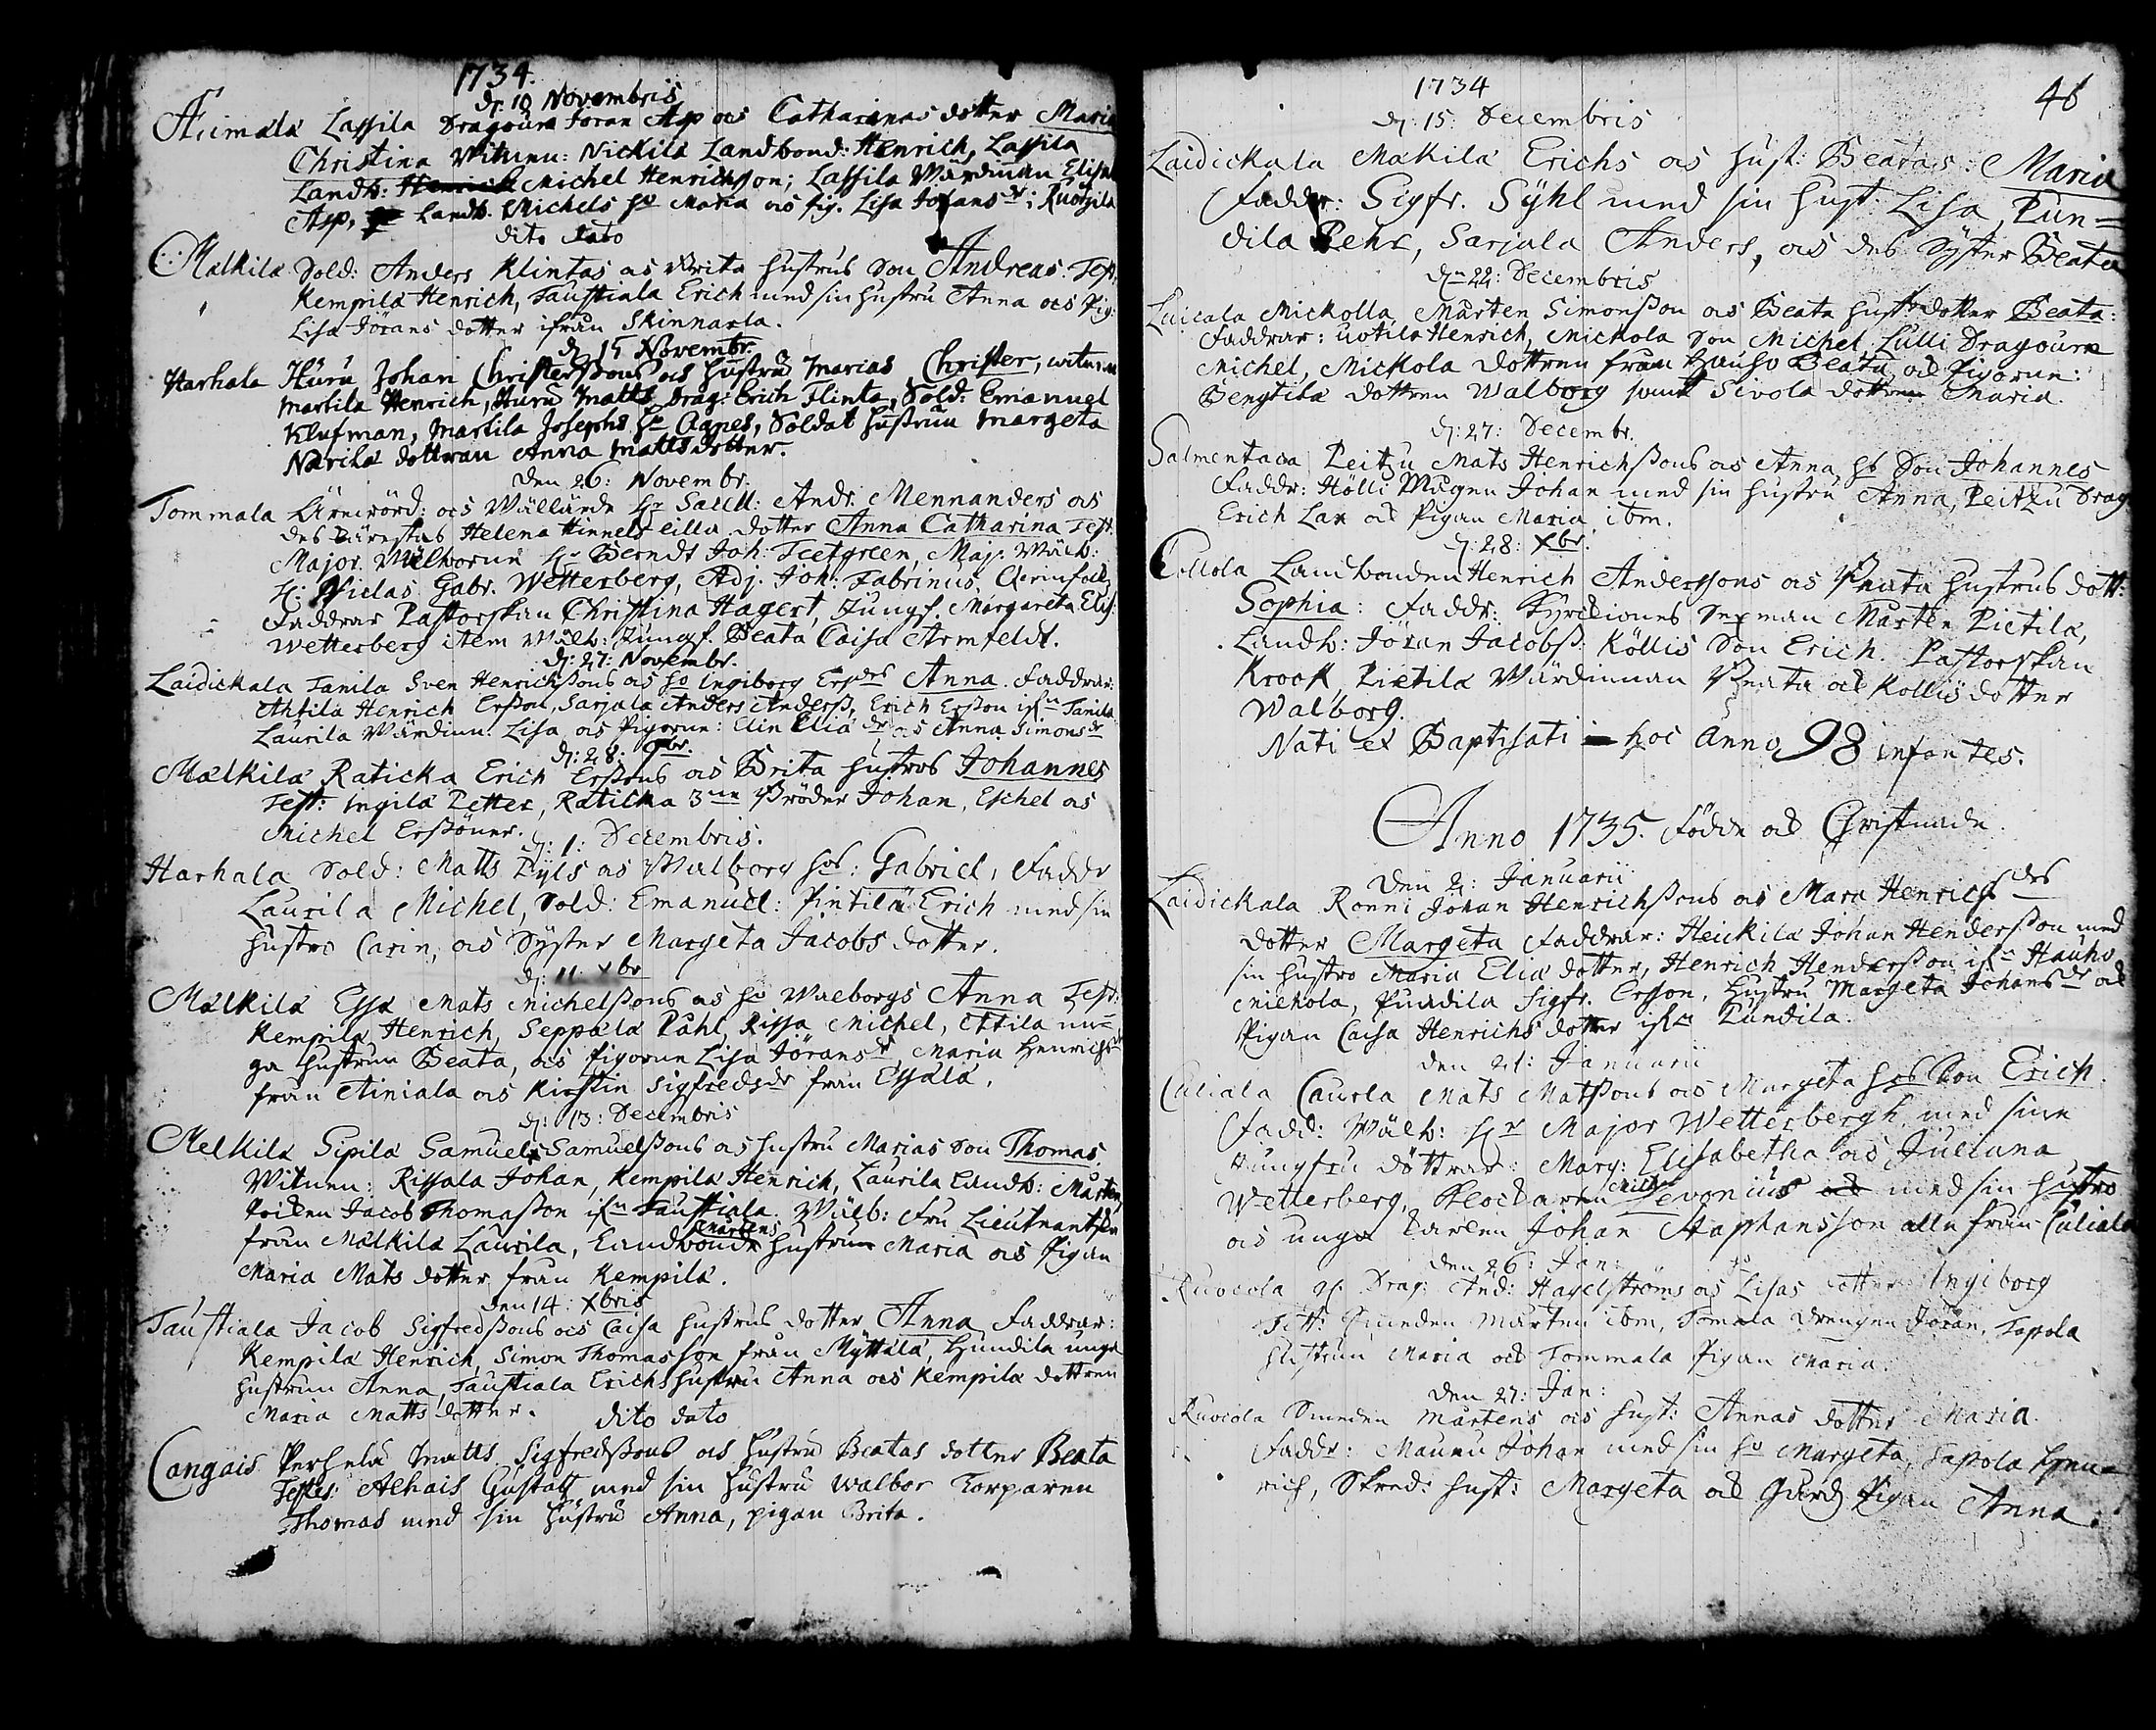 1734.
d. 10 Novembris
Aimala Lassila Dragoun Jöran Asp och Catharinas dotter Maria
Christina Vitnen: Nickila Landbond: Henrich, Lassila
Landb: Henrich Michel Henrichsson; Lassila Wärdinnan Elisab
Asp, Landb. Michels ho Maria och pig. Lisa Johans dr; Ruogila
dito dato
Mälkilä Sold: Anders Klintas och Brita hustrus Son Andreas. Test:
Kempilä Henrich, Taustiala Erich med sin hustru Anna och Pig:
Lisa Jörans dotter ifrån Skinnarla.
d 15 Novembr.
Harhala Huru Johan Christerssons och hustru Marias Christer, witnen
Martila Henrich, Huru Matts, Drag: Erich Flinta, Sold: Emanuel
Klufman, Martila Josephs ho Agnes, Soldat hustrun Margeta
Närilä dottran Anna Mattsdotter.
den 26: Novembr:
Tommala Ärewörd: och Wällärde Hr Saul: Andr. Mennanders och
des Kärestas Helena Kinnels lilla dotter Anna Catharina Test:
Major Wälborne Hr Berndt Joh: Teetgreen, Maj: Wälb:
H: Niclas Gabr. Wetterberg, Adj. Joh: Fabrinus,
Faddrar Pastorskan Christina Hagert, Jungf. Margareta Elis:
Wetterberg item Wälb: Jungf. Beata Caisa Armfeldt.
d: 27: Novembr.
Laidickala Tanila Sven Henrichssons och ho Ingiborg Ersdrs Anna. Faddrar:
Ahtila Henrich Ersson, Sarjala Anders Anderss, Erich Ersson ifrn Tanila
Laurila Wärdinn: Lisa och Pigorne: Elin Elia dr och Anna Simons dr
d: 28: 9br.
Mälkilä Raticka Erich Erssons och Brita hustros Johannes
Test: Ingilä Petter, Ratilka 3ne Bröder Johan, Eschel och
Michel Erssöner.
d: 1: Decembris.
Harhala Sold: Matts Pyls och Walborg hos: Gabriel, Faddr
Laurila Michel, Sold: Emanuel: Pintilä Erich med sin
hustro Carin, och Syster Margeta Jacobs dotter.
d: 11 Xbr
Mälkilä Essa Mats Michelssons och ho Walborgs Anna Test:
Kempilä Henrich, Seppälä Påhl, Rissa Michel, Attila un=
ga hustrun Beata, och Pigorne Lisa Jörans dr, Maria Henrichs dr
från Ainiala och Kirstin Sigfreds dr från Essälä.
d: 13: Decembris
Mälkilä Sipilä Samuel Samuelssons och hustru Marias Son Thomas.
Vitnen: Rissala Johan, Kempilä Henrich, Laurila Landb: Mårten,
Poiken Jacob Thomasson ifrn Taustiala. Wälb: Fru Lieutnantskan
från Mälkilä Laurila, Landbonde Mårtens hustrun Maria och Pigan
Maria Mats dotter från Kempilä.
den 14: Xbris
Taustiala Jacob Sigfredssons och Caisa hustrus dotter Anna Faddrar:
Kempilä Henrich, Simon Thomasson från Myttälä, Hundila unga
hustrun Anna, Taustiala Erichs hustru Anna och Kempilä dottren
Maria Matts dotter.
dito dato
Cangais Perhelä Matts Sigfredssons och hustru Beatas dotter Beata
Testes: Alhais Gustaff med sin hustru Walbor Torparen
Thomas med sin hustru Anna, pigan Brita.
1734
46
d: 15: Decembris
Laidickala Makilä Erichs och hust: Beatas: Maria
Faddr: Sigfr. Sÿhl med sin hust: Lisa, Pun=
dila Pehr, Sarjala Anders, och des Syster Beata
dn 22: Decembris
Luicala Mickolla Mårten Simonsson och Beata hust dotter Beata:
Faddrar: Uotila Henrich, Mickola Son Michel, Lulli Dragoun
Michel, Mickola dottren från Hauho Beata, och Pigorne:
Bengtila dottren Walborg samt Sivola dottren Maria.
d: 27: Decembr.
Salmentaca Peitzu Mats Henrichssons och Anna hs Son Johannes
Faddr: Hölli Mågen Johan med sin hustru Anna, Peitzu Drag
Erich Lax och Pigan Maria ibm.
d: 28: Xbr.
Landbonden Henrich Anderssons och Beata hustrus dott:
Sophia: Faddr: Sexman Mårten Pietilä,
Landb: Jöran Jacobss: Köllis Son Erich. Pastorskan
Krook, Pietilä Wärdinnan Beata och Kollis dotter
Walborg.
Nati et Baptisati hoc Anno 98 infantes.
Anno 1735. Födde och Christnade.
Den 2: Januarii
Laidickala Ronni Johan Henrichssons och Mara Henrichsdrs
dotter Margeta Faddrar: Heickilä Johan Hendersson med
sin hustro Maria Elia dotter, Henrich Hendersson ifrn Hauho
Mickola, Pundila Sigfr. Ersson, hustru Margeta Johans dr och
Pigan Caisa Henrichs dotter ifrn Pundila.
den 21: Januarii
Culiala Caurla Mats Matssons och Margeta hos Son Erich
Fadd: Wälb: Hr Major Wetterbergh med sine
Jungfru döttrar: Marg: Elisabetha och Juliana
Wetterberg, Klockaren Michel Levonius med sin hustro
och unga karlen Johan Staphansson alla från Culiala
den 26: Jan:
Ruocola Drag: And: Hagelströms och Lisas dotter Ingiborg
Test: Smeden Mårten ibm, Tommla drengen Jöran, Sapola
hustrun Maria och Tommala Pigan Maria.
den 27: Jan:
Ruocola Smeden Mårtens och hust: Annas dotter Maria.
Faddr: Maunu Johan med sin ho Margeta, Sapola Hen=
rich, Skred: hust: Margeta och Gård Pigan Anna.